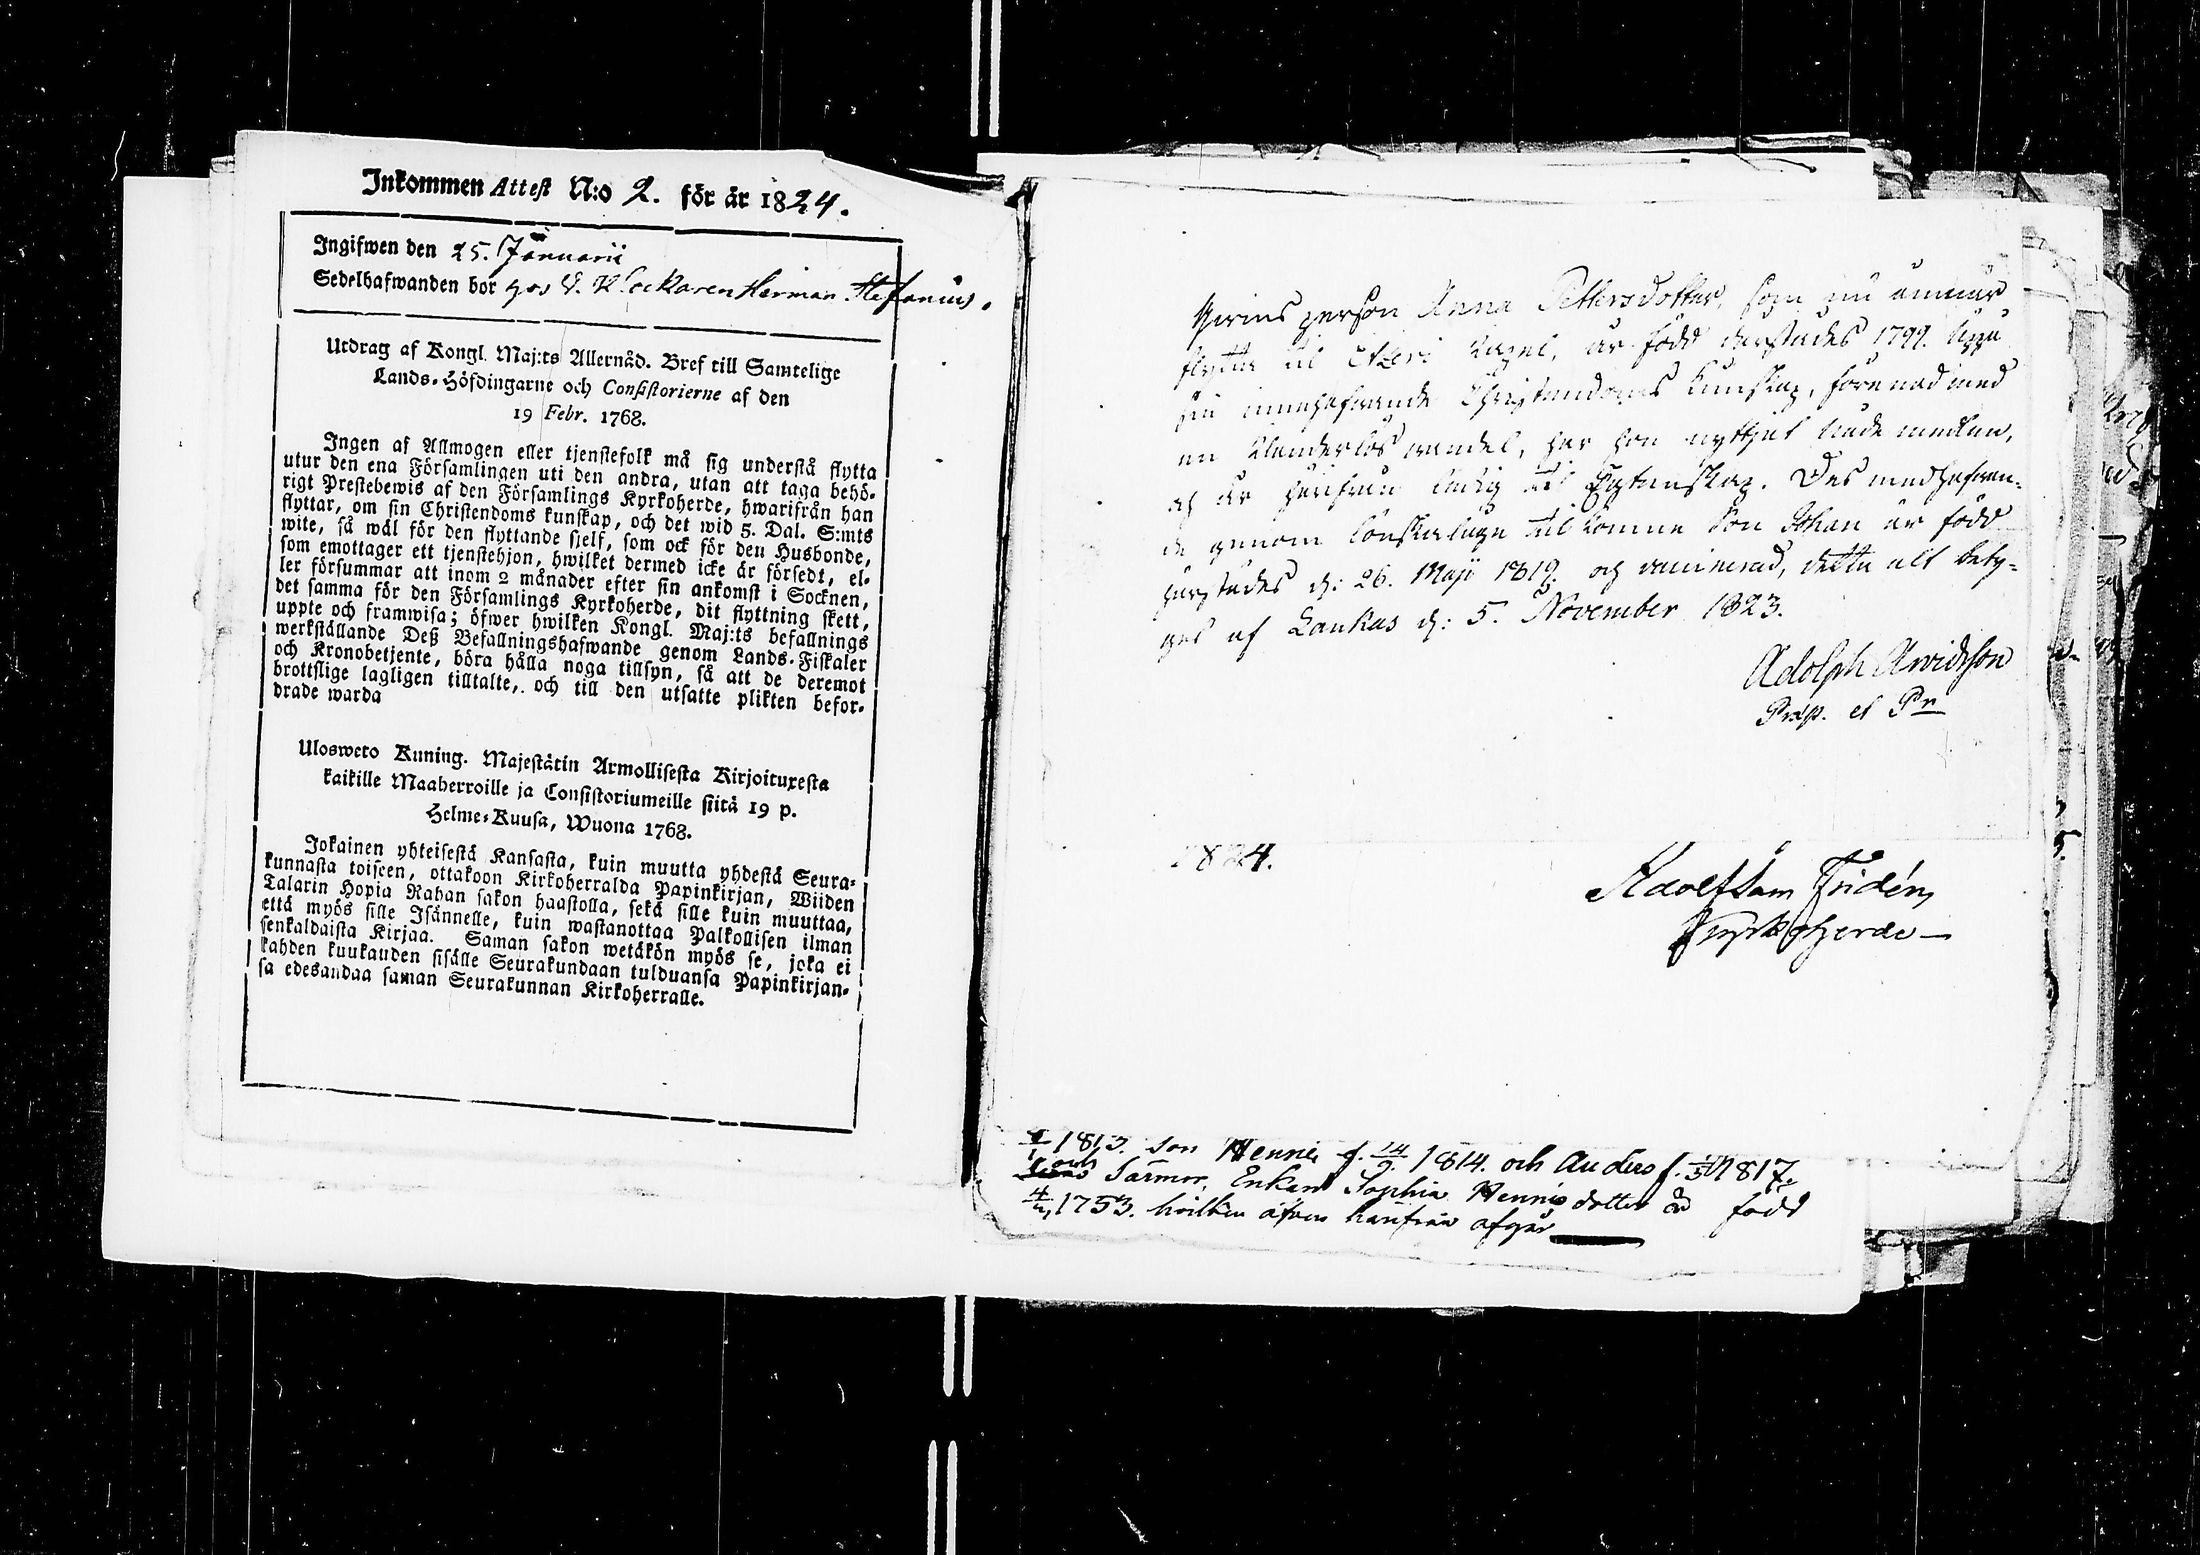 Inkommen Attest N:o 2. för år 1824.
Ingifwen den 25. Januarii
Sedelhafwanden bor hos V. Klockaren Herman Stefanius.
Utdrag af Kongl. Maj:ts Allernåd. Bref till Samtelige
Lands-Höfdingarne och Consistorierne af den
19 Febr. 1768.
Ingen af Allmogen eller tjenstefolk må sig understå flytta
utur den ena Församlingen uti den andra, utan att taga behö-
rigt Prestebewis af den Församlings Kyrkoherde, hwarifrån han
flyttar, om sin Christendoms kunskap, och det wid 5. Dal. S:mts
wite, så wäl för den flyttande sjelf, som ock för den Husbonde,
som emottager ett tjenstehjon, hwilket dermed icke är försedt, el-
ler försummar att inom 2 månader efter sin ankomst i Socknen,
det samma för den Församlings Kyrkoherde, dit flyttning skett,
uppte och framwisa; öfwer hwilken Kongl. Maj:ts befallnings
werkställande Deß Befallningshafwande genom Lands-Fiskaler
och Kronobetjente, böra hålla noga tillsyn, så att de deremot
brottslige lagligen tilltalte, och till den utsatte plikten befor-
drade warda
Ulosweto Kuning. Majestätin Armollisesta Kirjoituxesta
kaikille Maaherroille ja Consistoriumeille siitä 19 p.
Helme-Kuusa, Wuona 1768.
Jokainen yhteisestä Kansasta, kuin muutta yhdestä Seura-
kunnasta toiseen, ottakoon Kirkoherralda Papinkirjan, Wiiden
Talarin Hopia Rahan sakon haastolla, sekä sille kuin muuttaa,
että myös sille Isännelle, kuin wastanottaa Palkollisen ilman
senkaldaista Kirjaa. Saman sakon wetäkön myös se, joka ei
kahden kuukauden sisälle Seurakundaan tulduansa Papinkirjan-
sa edesandaa saman Seurakunnan Kirkoherralle.
Qvins person Anna Pettersdotter, som nu ämnar
flytta til Etzeri Capel, är född derstädes 1799. Uppå
sin innehafwande Christendoms kunskap, förenad med
en klanderlös wandel, har hon nyttjat nådemedlen,
och är härifrån ledig til Ägtenskap. Des medhafwan-
de genom lönskaläge tilkomne Son Johan är född
härstädes d: 26. Maji 1819. och vaccinerad, detta alt bety-
ges af Laukas d: 5. November 1823.
Adolph Arwidsson
Præp. et Pr
1824.
Adolf Sam Fridén,
Kyrkoherde
1813. son Hennes f. 14/9. 1814. och Anders f. 1817.
och Sarmor, Enkan Sophia Hennisdotter är född
1753. hvilken äfven härifrån afgår